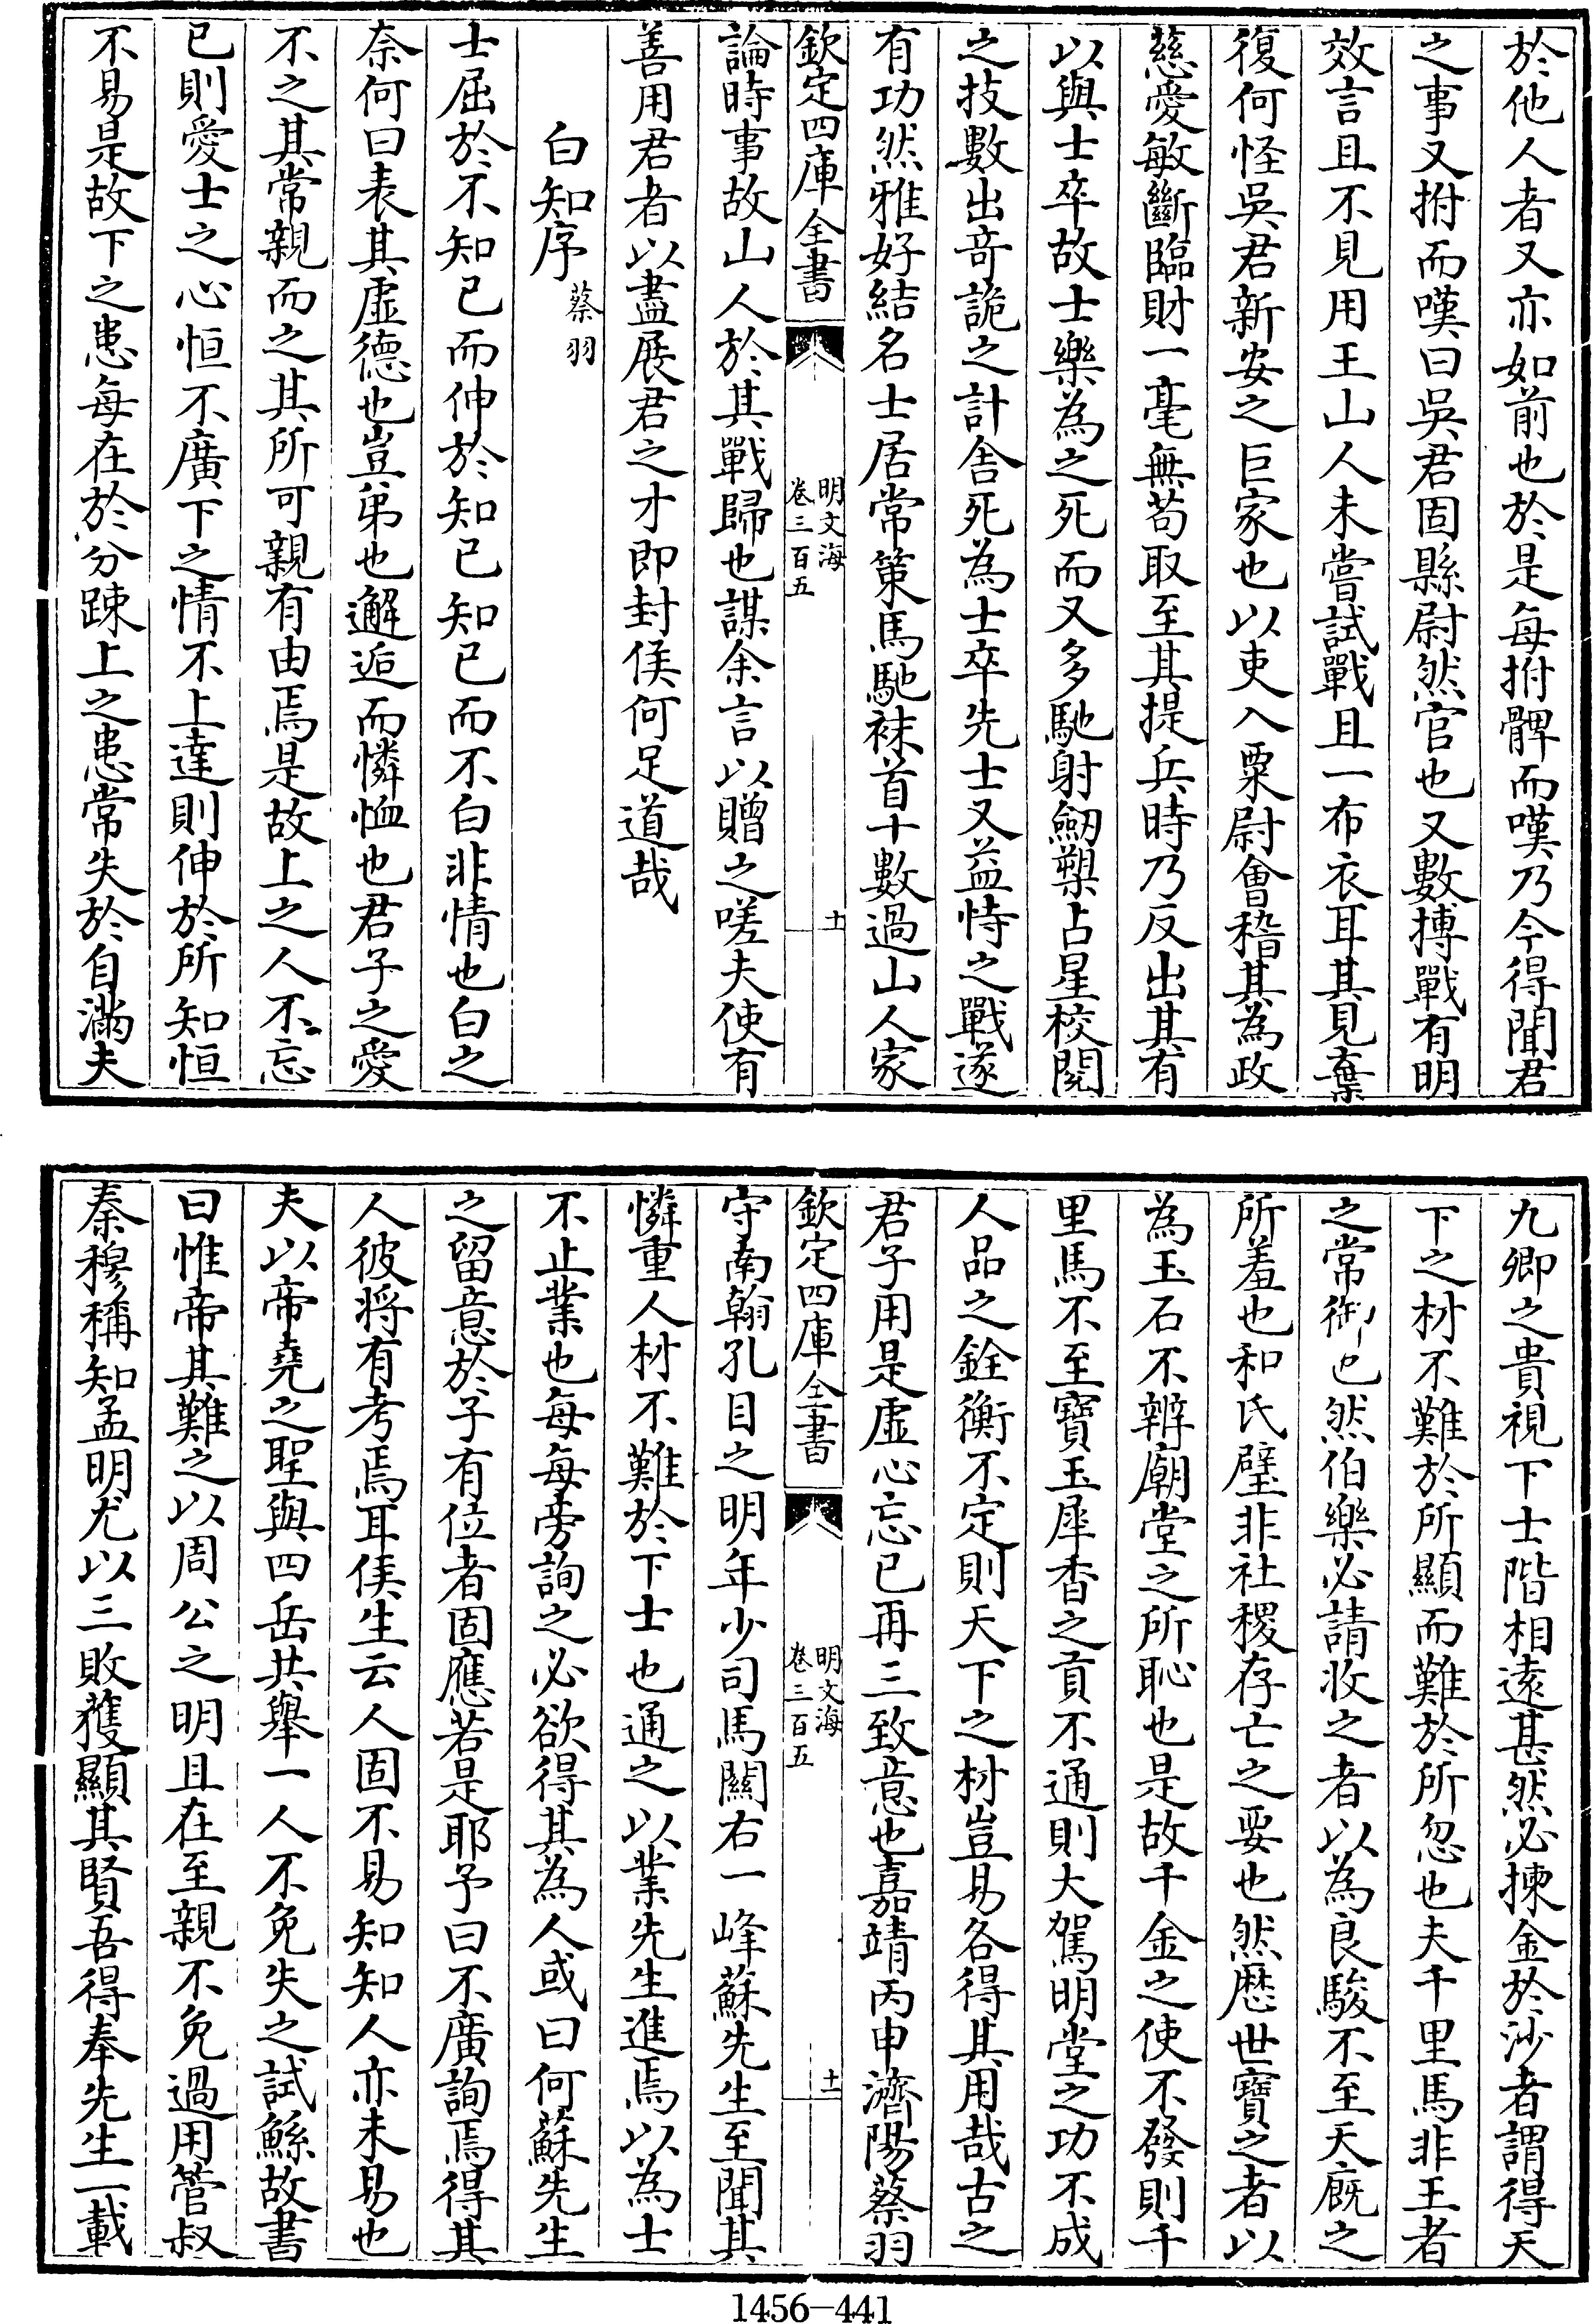 於他人者又亦如前也於是每拊髀而嘆乃今得聞君
之事又拊而嘆曰吳君固縣尉然官也又數搏戰有明
效言且不見用王山人未嘗試戰且一布衣耳其見棄
復何怪吳君新安之巨家也以吏入粟尉會稽其為政
慈愛敏斷臨財一毫無苟取至其提兵時乃反出其有
以與士卒故士樂為之死而又多馳射劒槊占星校閱
之技數出奇詭之計舍死為士卒先士又益恃之戰遂
有功然雅好結名士居常策馬馳袜首十數過山人家
欽定四庫全書
明文海
卷三百五
十
論時事故山人於其戰歸也謀余言以贈之嗟夫使有
善用君者以盡展君之才即封侯何足道哉
白知序 蔡羽
士屈於不知已而伸於知已知已而不白非情也白之
奈何曰表其虛德也豈弟也邂逅而憐恤也君子之愛
不之其常親而之其所可親有由焉是故上之人不忘
已則愛士之心恒不廣下之情不上達則伸於所知恒
不易是故下之患每在於分踈上之患常失於自滿夫
九卿之貴視下士階相遠甚然必揀金於沙者謂得天
下之材不難於所顯而難於所忽也夫千里馬非王者
之常御也然伯樂必請收之者以為良駿不至天廐之
所羞也和氏璧非社稷存亡之要也然歷世寶之者以
為玉石不辨廟堂之所恥也是故千金之使不發則千
里馬不至寶玉犀香之貢不通則大駕明堂之功不成
人品之銓衡不定則天下之材豈易各得其用哉古之
君子用是虛心忘已再三致意也嘉靖丙申濟陽蔡羽
欽定四庫全書
明文海
卷三百五
十一
守南翰孔目之明年少司馬關右一峰蘇先生至聞其
憐重人材不難於下士也通之以業先生進焉以為士
不止業也每每旁詢之必欲得其為人或曰何蘇先生
之留意於子有位者固應若是耶予曰不廣詢焉得其
人彼將有考焉耳侯生云人固不易知知人亦未易也
夫以帝堯之聖與四岳共舉一人不免失之試鯀故書
曰惟帝其難之以周公之明且在至親不免過用管叔
秦穆稱知孟明尤以三敗獲顯其賢吾得奉先生一載
1456-441